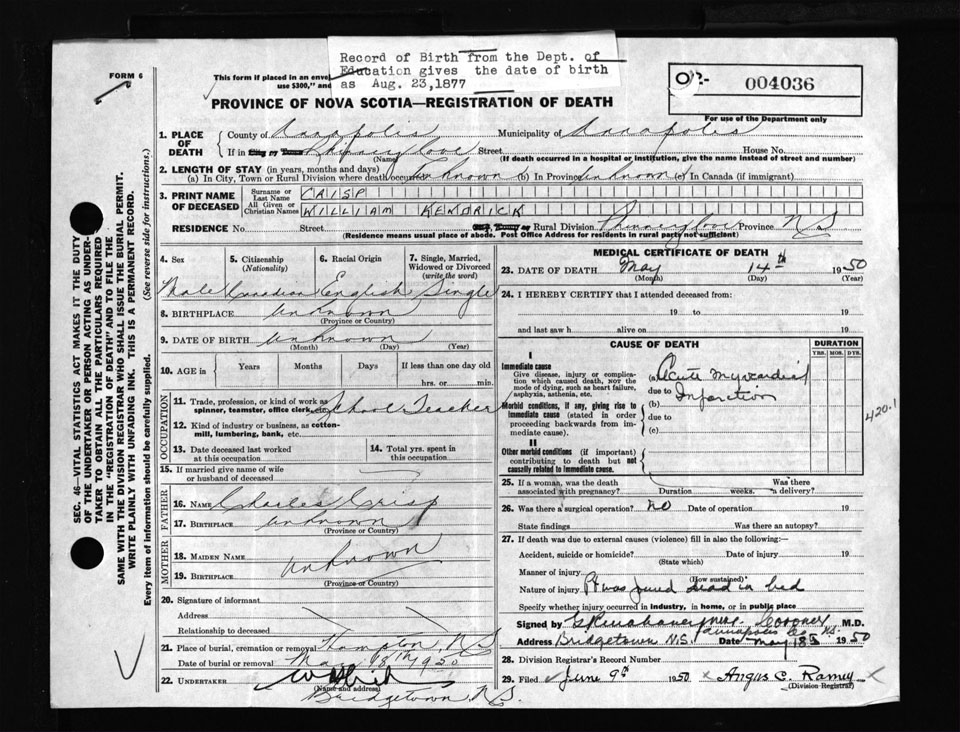 Record of Birth from the Dept. of
Education gives the date of birth
as Aug. 23,1877
FORM 6
This form if placed in an enve
use $300," and
004036
PROVINCE OF NOVA SCOTIA—REGISTRATION OF DEATH
For use of the Department only
1. PLACE OF DEATH
County of Annapolis Municipality of Annapolis
If in City or Town Phinney Cove Street House No.
(Name) (If death occurred in a hospital or institution, give the name instead of street and number)
2. LENGTH OF STAY (in years, months and days)
(a) In City, Town or Rural Division where death occurred Unknown (b) In Province Unknown (c) In Canada (if immigrant)
3. PRINT NAME OF DECEASED
Surname or Last Name CRISP
All Given or Christian Names WILLIAM KENDRICK
RESIDENCE No. Street City, Town or Rural Division Phinney Cove Province N.S
(Residence means usual place of abode. Post Office Address for residents in rural parts not sufficient)
4. Sex 5. Citizenship (Nationality) 6. Racial Origin 7. Single, Married, Widowed or Divorced (write the word)
Male Canadian English Single
8. BIRTHPLACE Unknown
(Province or Country)
9. DATE OF BIRTH Unknown
(Month) (Day) (Year)
10. AGE in Years Months Days If less than one day old
hrs. or min.
OCCUPATION
11. Trade, profession, or kind of work as spinner, teamster, office clerk, School Teacher
12. Kind of industry or business, as cotton-mill, lumbering, bank, etc.
13. Date deceased last worked at this occupation 14. Total yrs. spent in this occupation
15. If married give name of wife or husband of deceased
FATHER
16. NAME Charles Crisp
17. BIRTHPLACE Unknown
(Province or Country)
MOTHER
18. MAIDEN NAME Unknown
19. BIRTHPLACE
(Province or Country)
20. Signature of informant
Address
Relationship to deceased
21. Place of burial, cremation or removal Hampton, N.S
Date of burial or removal May 18th 1950
22. UNDERTAKER
(Name and address)
Bridgetown, N.S.
MEDICAL CERTIFICATE OF DEATH
23. DATE OF DEATH May 14th 1950
(Month) (Day) (Year)
24. I HEREBY CERTIFY that I attended deceased from:
19 to 19
and last saw h alive on 19
CAUSE OF DEATH DURATION
YRS. MOS. DYS.
I
Immediate cause
Give disease, injury or complication which caused death, NOT the mode of dying, such as heart failure, asphyxia, asthenia, etc.
(a) Acute Myocardial
due to Infarction
Morbid conditions, if any, giving rise to immediate cause (stated in order proceeding backwards from immediate cause).
(b)
due to
(c)
420.1
II
Other morbid conditions (if important) contributing to death but not causally related to immediate cause.
25. If a woman, was the death associated with pregnancy? Duration weeks. Was there a delivery?
26. Was there a surgical operation? No Date of operation 19
State findings Was there an autopsy?
27. If death was due to external causes (violence) fill in also the following:—
Accident, suicide or homicide? Date of injury 19
(State which)
Manner of injury
(How sustained)
Nature of injury Pt was found dead in bed
Specify whether injury occurred in industry, in home, or in public place
Signed by Coroner M.D.
Annapolis Co N.S.
Address Bridgetown N.S. Date May 18 1950
28. Division Registrar's Record Number
29. Filed June 9th 1950 Angus C. Ramey
(Division Registrar)
SEC. 46—VITAL STATISTICS ACT MAKES IT THE DUTY
OF THE UNDERTAKER OR PERSON ACTING AS UNDER-
TAKER TO OBTAIN ALL THE PARTICULARS REQUIRED
IN THE "REGISTRATION OF DEATH" AND TO FILE THE
SAME WITH THE DIVISION REGISTRAR WHO SHALL ISSUE THE BURIAL PERMIT.
WRITE PLAINLY WITH UNFADING INK. THIS IS A PERMANENT RECORD.
Every item of information should be carefully supplied. (See reverse side for instructions.)